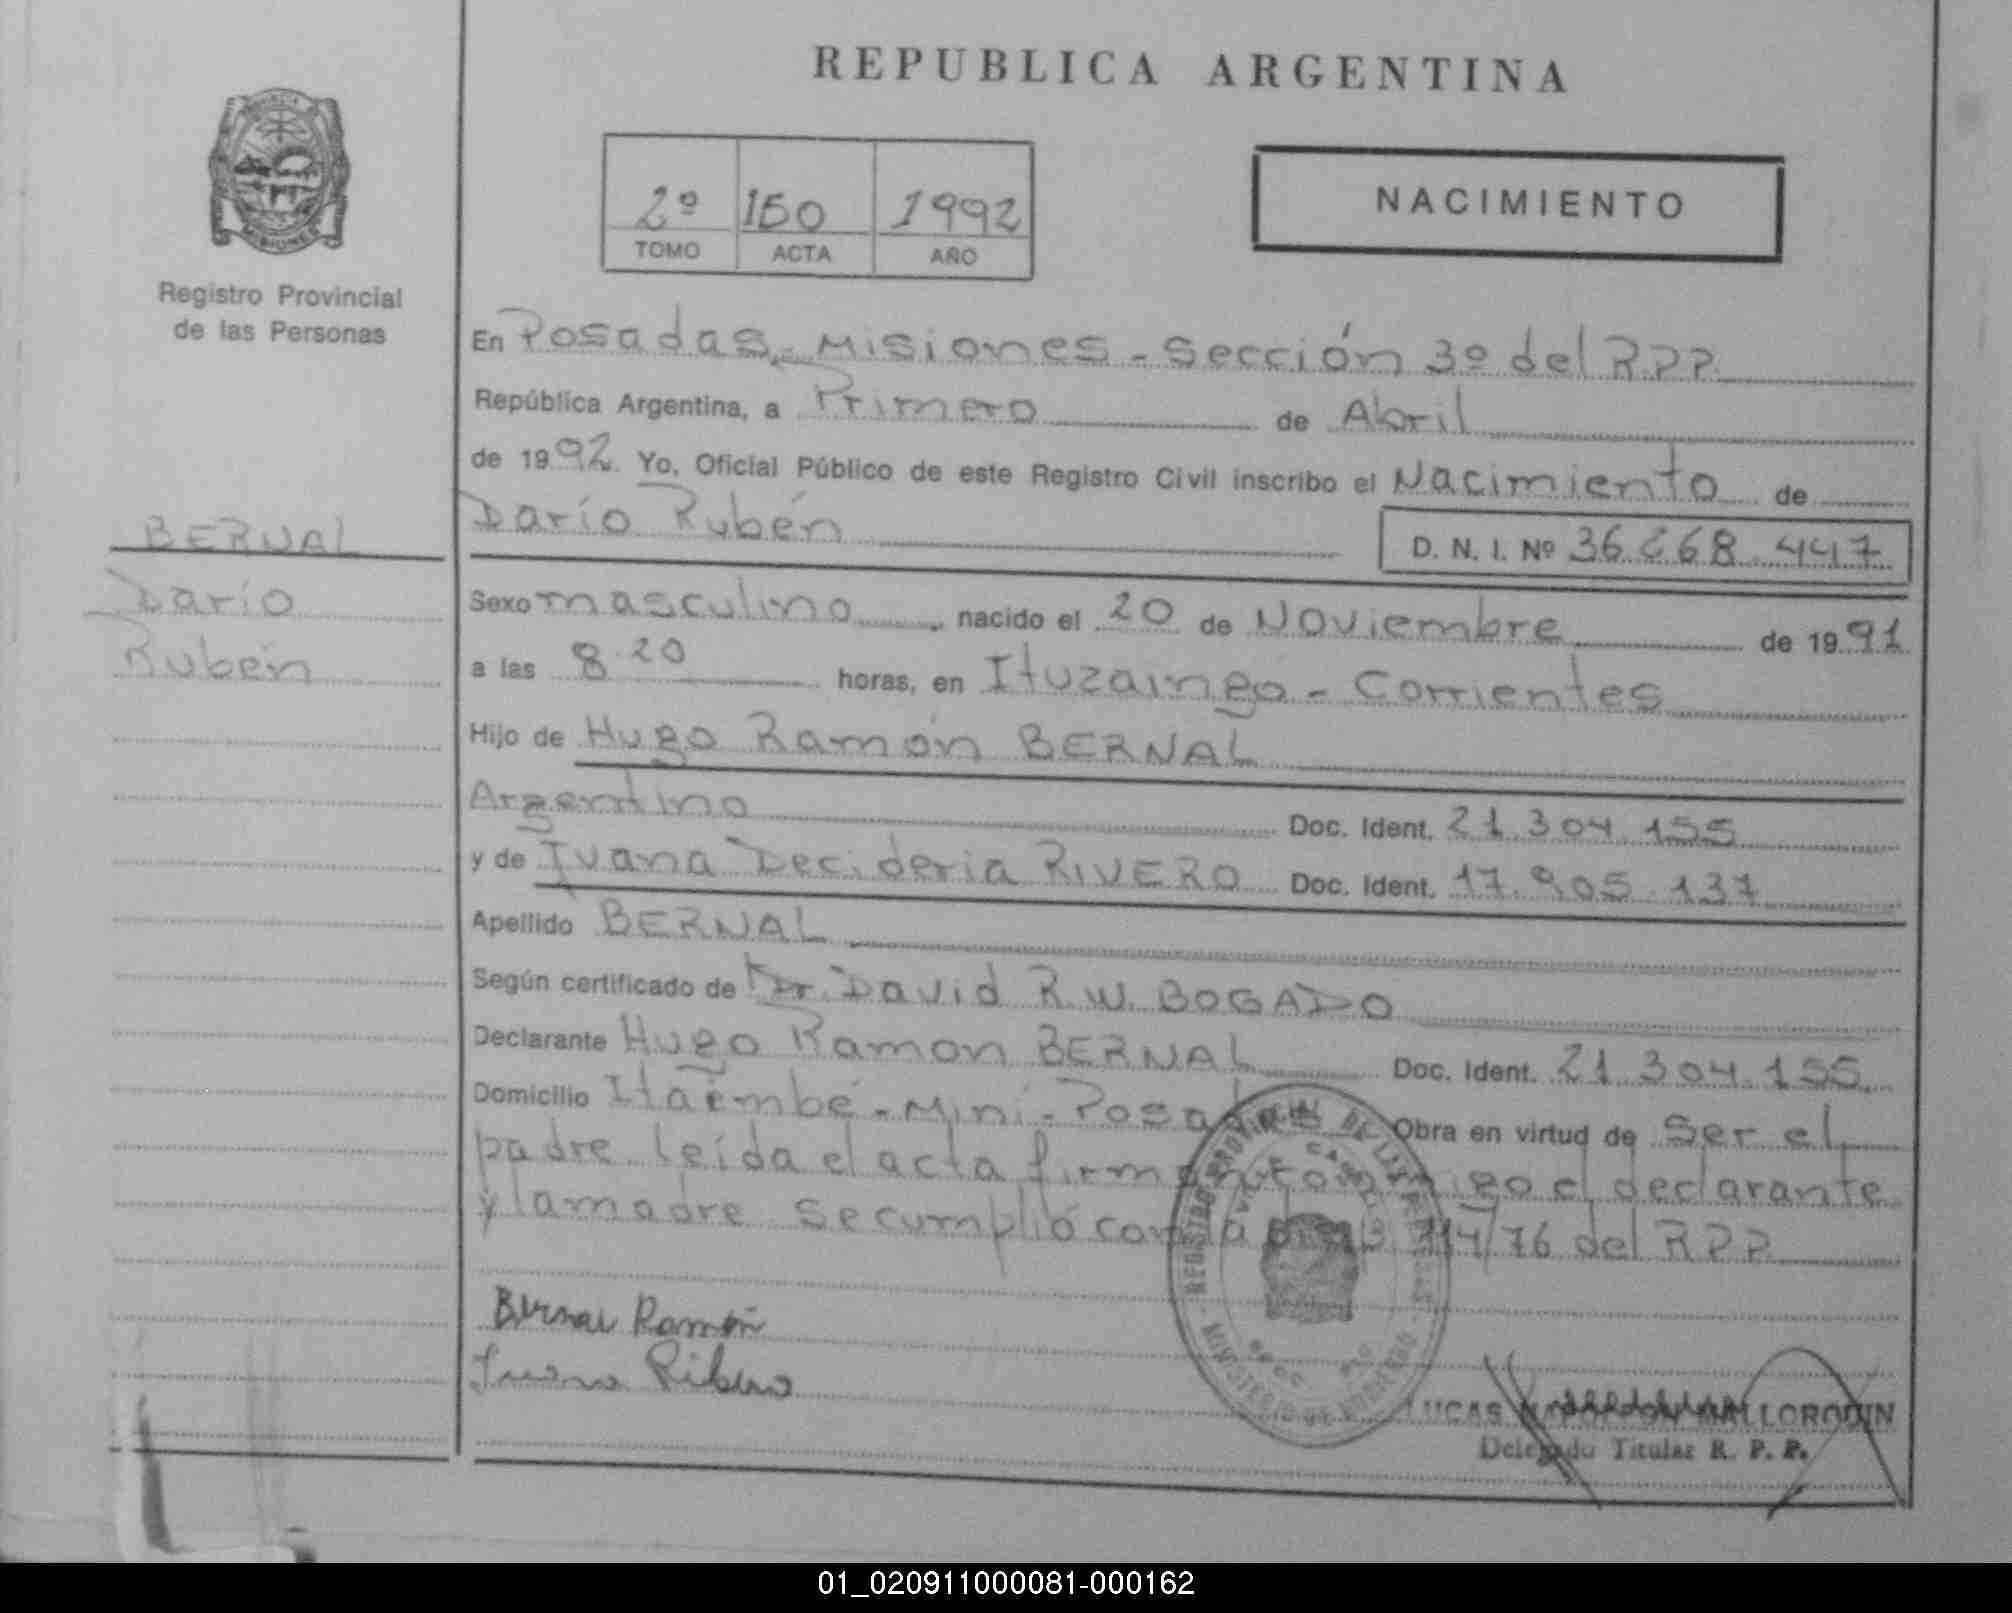 REPUBLICA ARGENTINA
2º 150 1992
TOMO ACTA AÑO
NACIMIENTO
MISIONES
Registro Provincial
de las Personas
BERNAL
Darío
Rubén
En Posadas - Misiones - Sección 3º del RPP
República Argentina, a Primero de Abril
de 1992 Yo, Oficial Público de este Registro Civil inscribo el Nacimiento de
Darío Rubén D. N. I. Nº 36.268.447
Sexo masculino nacido el 20 de Noviembre de 1991
a las 8.20 horas, en Ituzaingó - Corrientes
Hijo de Hugo Ramón BERNAL
Argentino Doc. Ident. 21.304.155
y de Juana Decideria RIVERO Doc. Ident. 17.905.137
Apellido BERNAL
Según certificado de Dr. David R. W. BOGADO
Declarante Hugo Ramon BERNAL Doc. Ident. 21.304.155
Domicilio Itaembé - Miní - Posadas Obra en virtud de Ser el
padre leída el acta firman conmigo el declarante
y la madre se cumplió con la 714/76 del RPP
Bernal Ramón
Juana Ribero
REGISTRO PROVINCIAL DE LAS PERSONAS
MINISTERIO DE GOBIERNO
LUCAS NAPOLEON MALLORQUIN
Delegado Titular R. P. P.
01_020911000081-000162